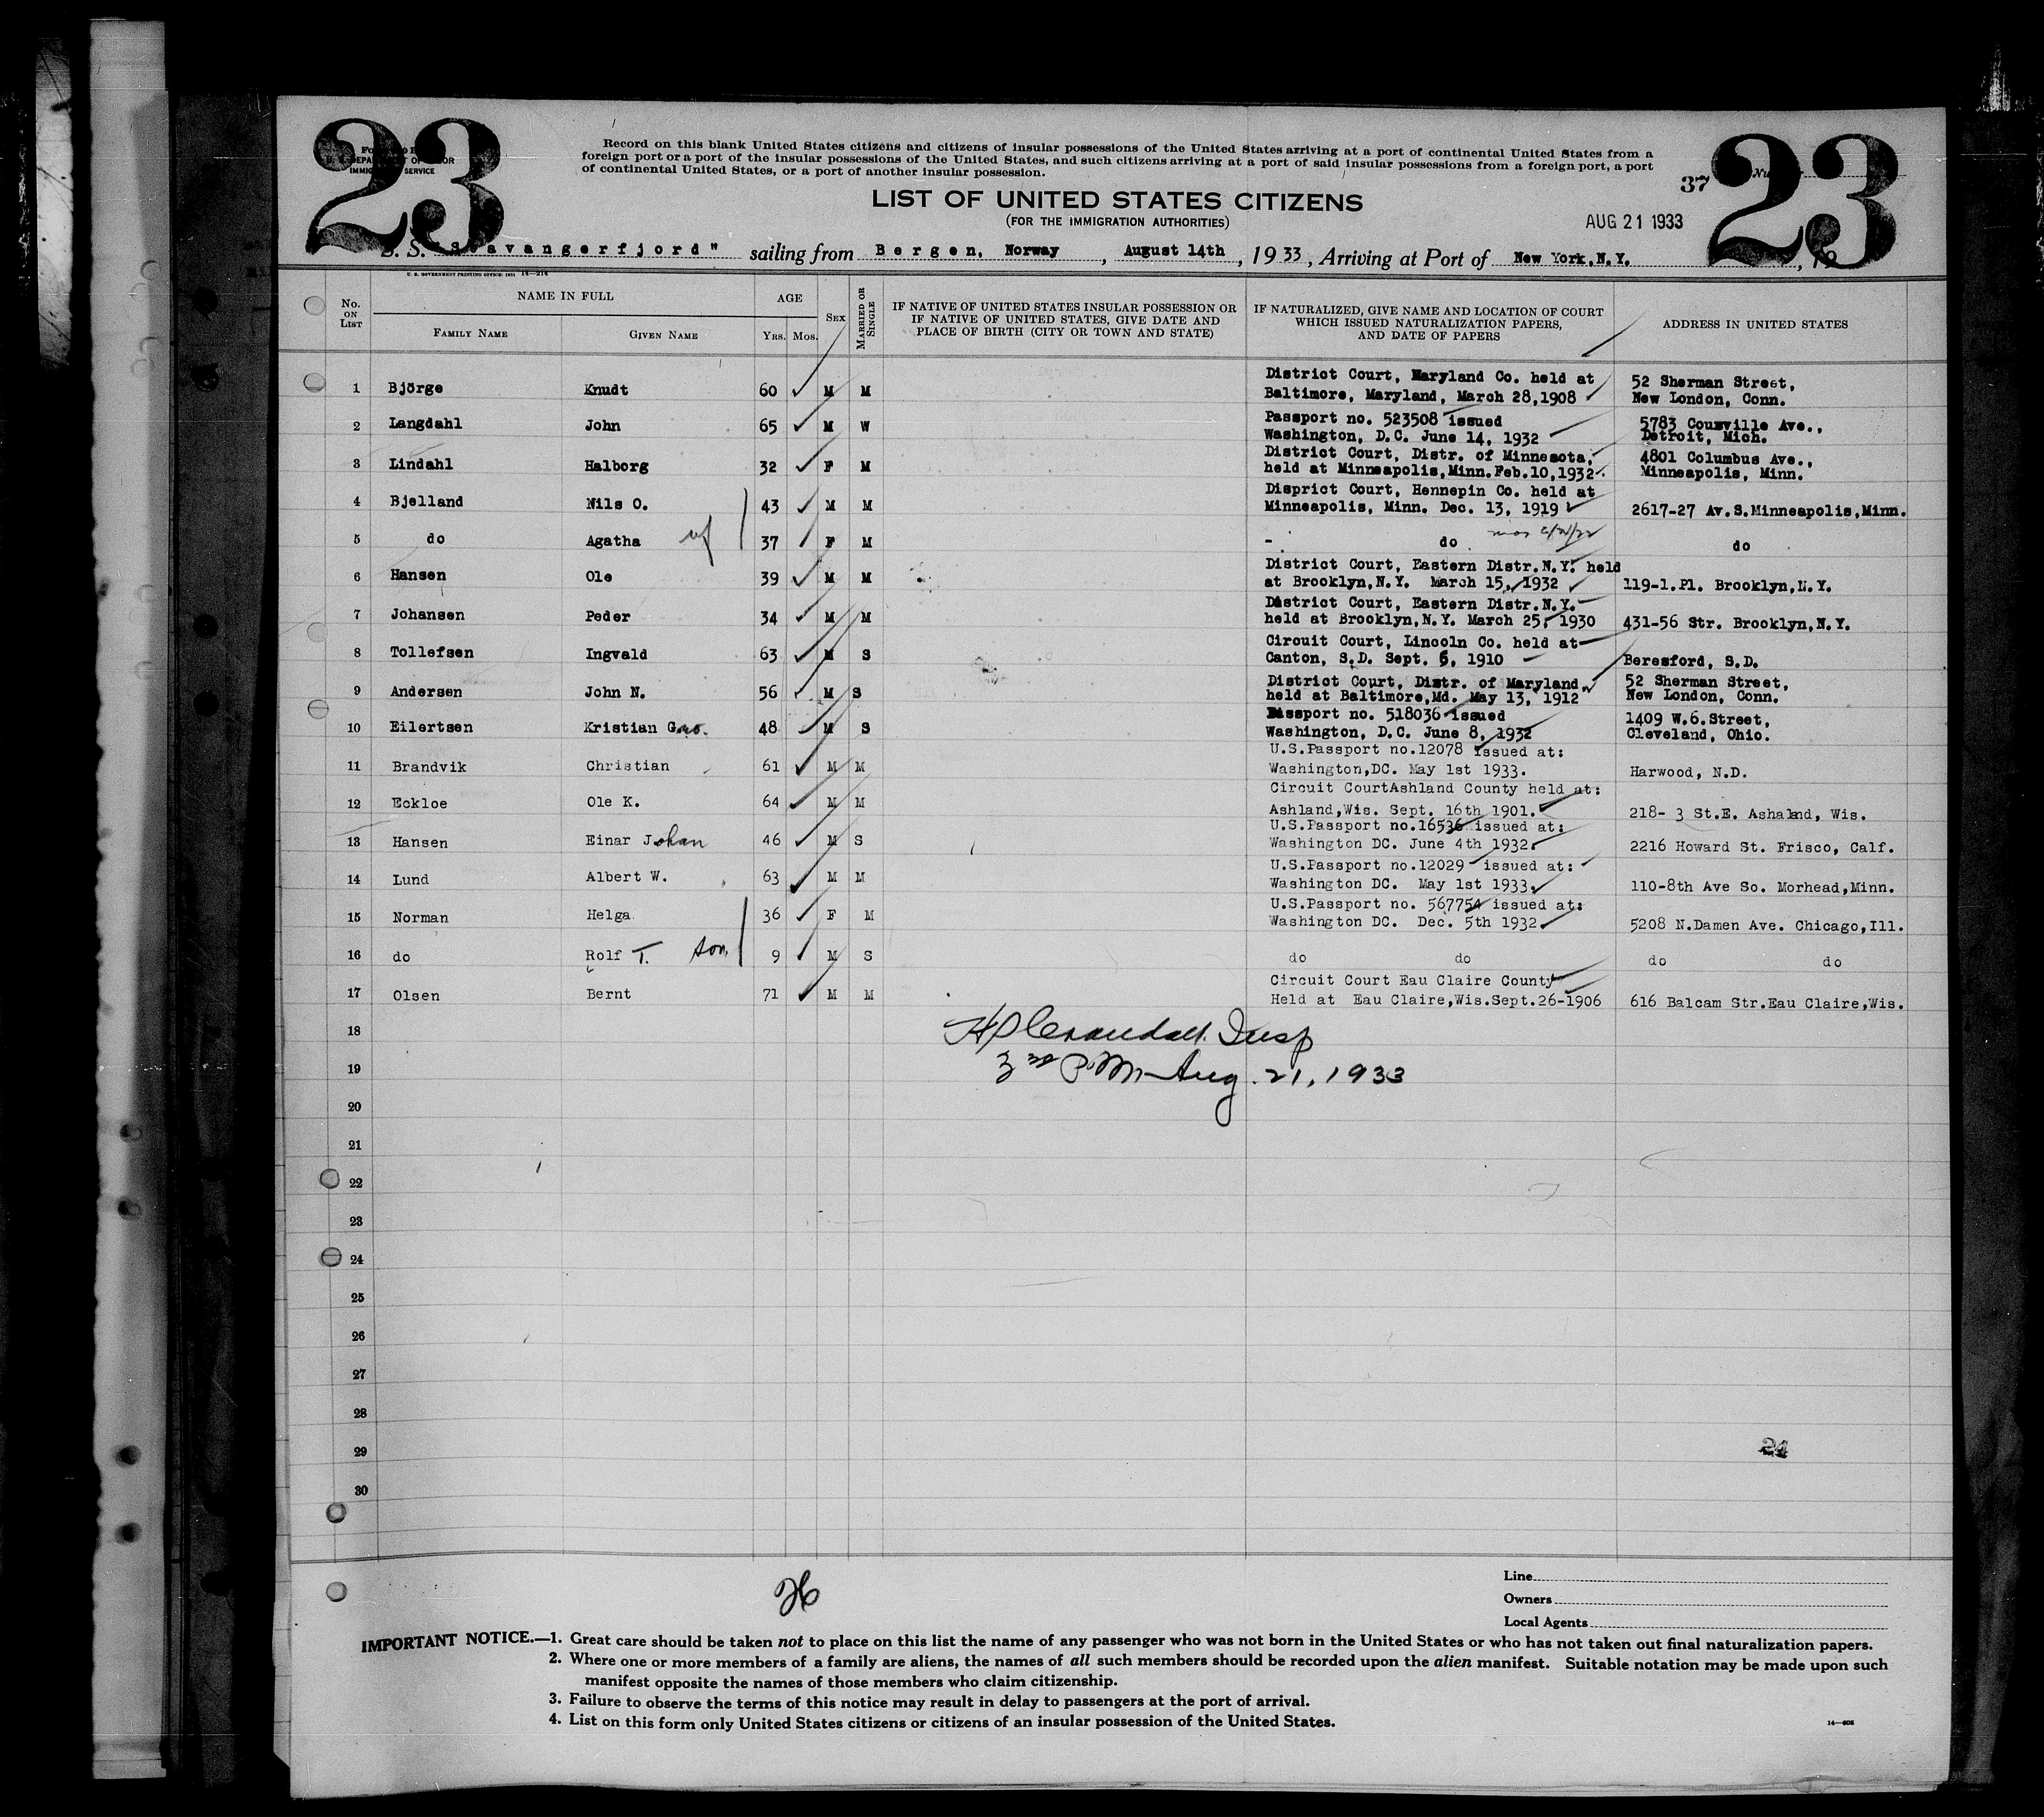 23
23
U. S. DEPARTMENT OF LABOR
IMMIGRATION SERVICE
Record on this blank United States citizens and citizens of insular possessions of the United States arriving at a port of continental United States from a
foreign port or a port of the insular possessions of the United States, and such citizens arriving at a port of said insular possessions from a foreign port, a port
of continental United States, or a port of another insular possession.
37
LIST OF UNITED STATES CITIZENS
(FOR THE IMMIGRATION AUTHORITIES)
AUG 21 1933
S. S. "Stavangerfjord" sailing from Bergen, Norway, August 14th, 1933, Arriving at Port of New York, N.Y., 19
U. S. GOVERNMENT PRINTING OFFICE: 1931 14—214
No. ON LIST NAME IN FULL AGE SEX MARRIED OR SINGLE
FAMILY NAME GIVEN NAME YRS. MOS.
IF NATIVE OF UNITED STATES INSULAR POSSESSION OR
IF NATIVE OF UNITED STATES, GIVE DATE AND
PLACE OF BIRTH (CITY OR TOWN AND STATE)
IF NATURALIZED, GIVE NAME AND LOCATION OF COURT
WHICH ISSUED NATURALIZATION PAPERS,
AND DATE OF PAPERS
ADDRESS IN UNITED STATES
District Court, Maryland Co. held at 52 Sherman Street,
1 Björge Knudt 60 M M Baltimore, Maryland, March 28,1908 New London, Conn.
Passport no. 523508 issued
2 Langdahl John 65 M W Washington, D.C. June 14, 1932 5783 Coumville Ave., Detroit, Mich.
District Court, Distr. of Minnesota, 4801 Columbus Ave.,
3 Lindahl Halborg 32 F M held at Minneapolis, Minn. Feb.10,1932 Minneapolis, Minn.
Disprict Court, Hennepin Co. held at
4 Bjelland Nils O. 43 M M Minneapolis, Minn. Dec. 13, 1919 2617-27 Av.S.Minneapolis,Minn.
5 do Agatha wf 37 F M - do do
District Court, Eastern Distr.N.Y. held
6 Hansen Ole 39 M M at Brooklyn,N.Y. March 15, 1932 119-1.Pl. Brooklyn,N.Y.
District Court, Eastern Distr.N.Y.
7 Johansen Peder 34 M M held at Brooklyn,N.Y. March 25, 1930 431-56 Str. Brooklyn,N.Y.
Circuit Court, Lincoln Co. held at
8 Tollefsen Ingvald 63 M S Canton, S.D. Sept. 6, 1910 Beresford, S.D.
District Court, Distr. of Maryland, 52 Sherman Street,
9 Andersen John N. 56 M S held at Baltimore,Md. May 13, 1912 New London, Conn.
Passport no. 518036 issued 1409 W.6.Street,
10 Eilertsen Kristian G 48 M S Washington, D.C. June 8, 1932 Cleveland, Ohio.
U.S.Passport no.12078 issued at:
11 Brandvik Christian 61 M M Washington,DC. May 1st 1933. Harwood, N.D.
Circuit CourtAshland County held at:
12 Eckloe Ole K. 64 M M Ashland,Wis. Sept. 16th 1901. 218- 3 St.E. Ashalnd, Wis.
U.S.Passport no.16536 issued at:
13 Hansen Einar Johan 46 M S Washington DC. June 4th 1932. 2216 Howard St. Frisco, Calf.
U.S.Passport no.12029 issued at:
14 Lund Albert W. 63 M M Washington DC. May 1st 1933. 110-8th Ave So. Morhead,Minn.
U.S.Passport no. 567754 issued at:
15 Norman Helga 36 F M Washington DC. Dec. 5th 1932. 5208 N.Damen Ave. Chicago,Ill.
16 do Rolf T. son 9 M S do do do do
Circuit Court Eau Claire County
17 Olsen Bernt 71 M M Held at Eau Claire,Wis.Sept.26-1906 616 Balcam Str.Eau Claire,Wis.
18 Insp
19 3rd P.M. Aug. 21, 1933
20
21
22
23
24
25
26
27
28
29 24
30
26
Line
Owners
Local Agents
IMPORTANT NOTICE.—1. Great care should be taken not to place on this list the name of any passenger who was not born in the United States or who has not taken out final naturalization papers.
2. Where one or more members of a family are aliens, the names of all such members should be recorded upon the alien manifest. Suitable notation may be made upon such
manifest opposite the names of those members who claim citizenship.
3. Failure to observe the terms of this notice may result in delay to passengers at the port of arrival.
4. List on this form only United States citizens or citizens of an insular possession of the United States.